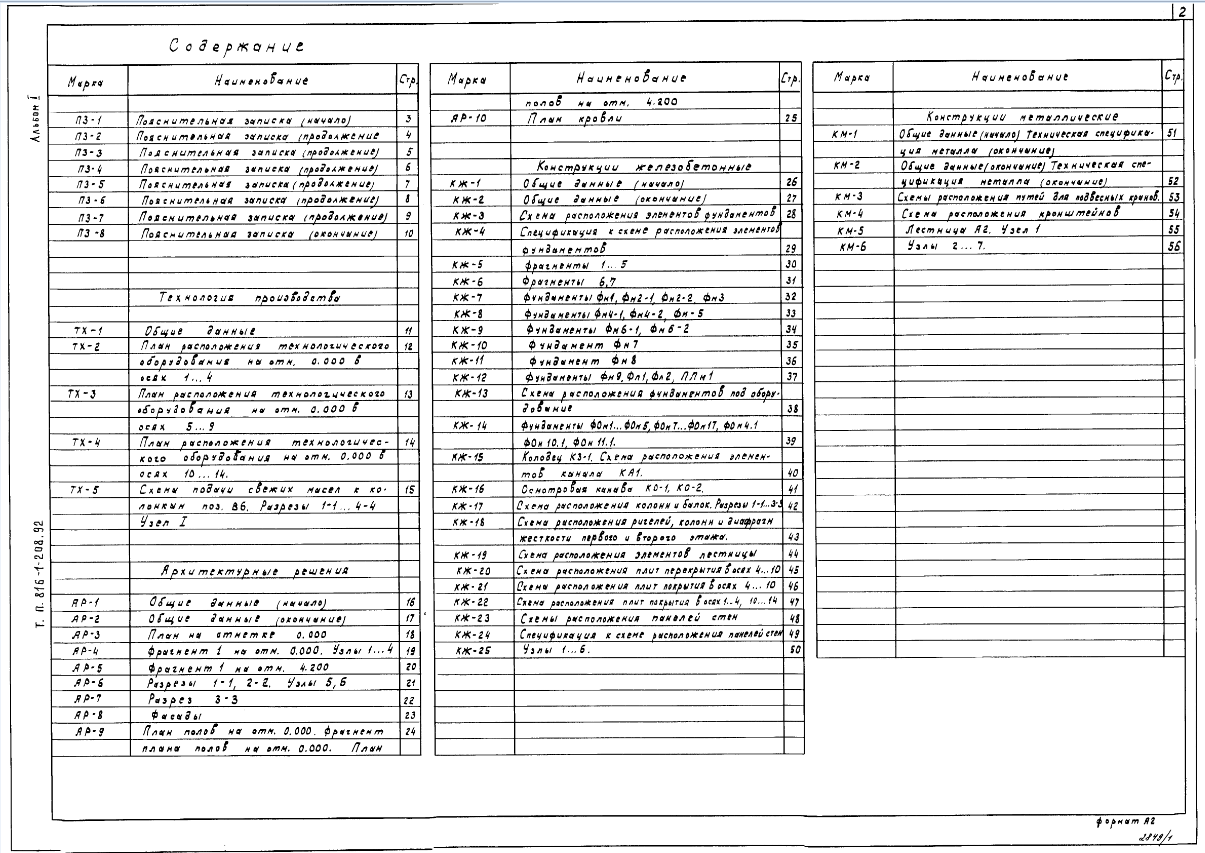 2
Содержание
Альбом I
Т.П. 816-1-208.92
Марка Наименование Стр.
ПЗ-1 Пояснительная записка (начало) 3
ПЗ-2 Пояснительная записка (продолжение 4
ПЗ-3 Пояснительная записка (продолжение) 5
ПЗ-4 Пояснительная записка (продолжение) 6
ПЗ-5 Пояснительная записка (продолжение) 7
ПЗ-6 Пояснительная записка (продолжение) 8
ПЗ-7 Пояснительная записка (продолжение) 9
ПЗ-8 Пояснительная записка (окончание) 10
Технология производства
ТХ-1 Общие данные 11
ТХ-2 План расположения технологического 12
оборудования на отм. 0.000 в
осях 1...4
ТХ-3 План расположения технологического 13
оборудования на отм. 0.000 в
осях 5...9
ТХ-4 План расположения технологичес- 14
кого оборудования на отм. 0.000 в
осях 10...14.
ТХ-5 Схема подачи свежих масел к ко- 15
лонкам поз. В6. Разрезы 1-1...4-4
Узел I
Архитектурные решения
АР-1 Общие данные (начало) 16
АР-2 Общие данные (окончание) 17
АР-3 План на отметке 0.000 18
АР-4 Фрагмент 1 на отм. 0.000. Узлы 1...4 19
АР-5 Фрагмент 1 на отм. 4.200 20
АР-6 Разрезы 1-1, 2-2. Узлы 5,6 21
АР-7 Разрез 3-3 22
АР-8 Фасады 23
АР-9 План полов на отм. 0.000. Фрагмент 24
плана полов на отм. 0.000. План
Марка Наименование Стр.
полов на отм. 4.200
АР-10 План кровли 25
Конструкции железобетонные
КЖ-1 Общие данные (начало) 26
КЖ-2 Общие данные (окончание) 27
КЖ-3 Схема расположения элементов фундаментов 28
КЖ-4 Спецификация к схеме расположения элементов
фундаментов 29
КЖ-5 Фрагменты 1...5 30
КЖ-6 Фрагменты 6,7 31
КЖ-7 Фундаменты Фм1, Фм2-1, Фм2-2, Фм3 32
КЖ-8 Фундаменты Фм4-1, Фм4-2, Фм-5 33
КЖ-9 Фундаменты Фм6-1, Фм6-2 34
КЖ-10 Фундамент Фм7 35
КЖ-11 Фундамент Фм8 36
КЖ-12 Фундаменты Фм9, Фл1, Фл2, ПЛм1 37
КЖ-13 Схема расположения фундаментов под обору-
дование 38
КЖ-14 Фундаменты ФОм1...ФОм5, ФОм7...ФОм17, ФОм4.1
ФОм10.1, ФОм11.1. 39
КЖ-15 Колодец КЗ-1. Схема расположения элемен-
тов канала КА1. 40
КЖ-16 Осмотровая канава КО-1, КО-2. 41
КЖ-17 Схема расположения колонн и балок. Разрезы 1-1...3-3 42
КЖ-18 Схема расположения ригелей, колонн и диафрагм
жесткости первого и второго этажа. 43
КЖ-19 Схема расположения элементов лестницы 44
КЖ-20 Схема расположения плит перекрытия в осях 4...10 45
КЖ-21 Схема расположения плит покрытия в осях 4...10 46
КЖ-22 Схема расположения плит покрытия в осях 1..4, 10...14 47
КЖ-23 Схемы расположения панелей стен 48
КЖ-24 Спецификация к схеме расположения панелей стен 49
КЖ-25 Узлы 1...6. 50
Марка Наименование Стр.
Конструкции металлические
КМ-1 Общие данные (начало) Техническая специфика- 51
ция металла (окончание)
КМ-2 Общие данные (окончание) Техническая спе-
цификация металла (окончание) 52
КМ-3 Схемы расположения путей для подвесных кранов. 53
КМ-4 Схема расположения кронштейнов 54
КМ-5 Лестница А2. Узел 1 55
КМ-6 Узлы 2...7. 56
формат А2
2849/1